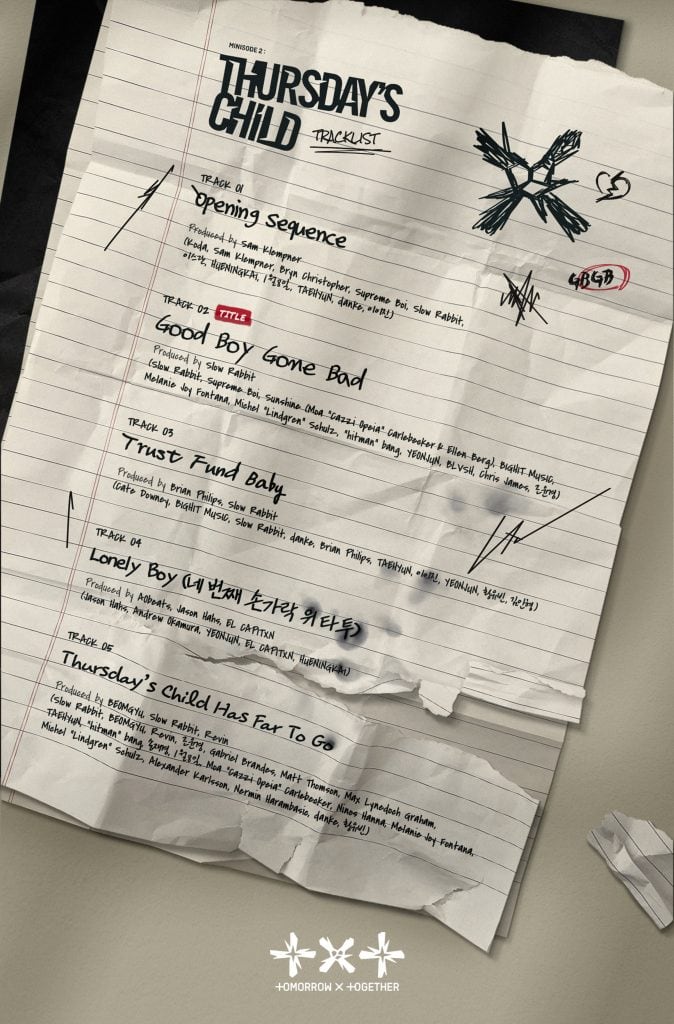 MINISODE 2 :
THURSDAY'S
CHILD
TRACKLIST
TRACK 01
Opening Sequence
Produced by Sam Klempner
(Koda, Sam Klempner, Bryn Christopher, Supreme Boi, Slow Rabbit,
이스란, HUENINGKAI, 1월8일, TAEHYUN, danke, 이이진)
GB GB
TRACK 02 TITLE
Good Boy Gone Bad
Produced by Slow Rabbit
(Slow Rabbit, Supreme Boi, Sunshine (Moa "Cazzi Opeia" Carlebecker & Ellen Berg), BIGHIT MUSIC,
Melanie Joy Fontana, Michel "Lindgren" Schulz, "hitman" bang, YEONJUN, BLVSH, Chris James, 조윤경)
TRACK 03
Trust Fund Baby
Produced by Brian Philips, Slow Rabbit
(Cate Downey, BIGHIT MUSIC, Slow Rabbit, danke, Brian Philips, TAEHYUN, 이이진, YEONJUN, 황유빈, 김인형)
TRACK 04
Lonely Boy (네 번째 손가락 위 타투)
Produced by AObeats, Jason Hahs, EL CAPITXN
(Jason Hahs, Andrew Okamura, YEONJUN, EL CAPITXN, HUENINGKAI)
TRACK 05
Thursday's Child Has Far To Go
Produced by BEOMGYU, Slow Rabbit, Revin
(Slow Rabbit, BEOMGYU, Revin, 조윤경, Gabriel Brandes, Matt Thomson, Max Lynedoch Graham,
TAEHYUN, "hitman" bang, 1월8일, Moa "Cazzi Opeia" Carlebecker, Ninos Hanna, Melanie Joy Fontana,
Michel "Lindgren" Schulz, Alexander Karlsson, Nermin Harambasic, danke, 황유빈)
TOMORROW X TOGETHER